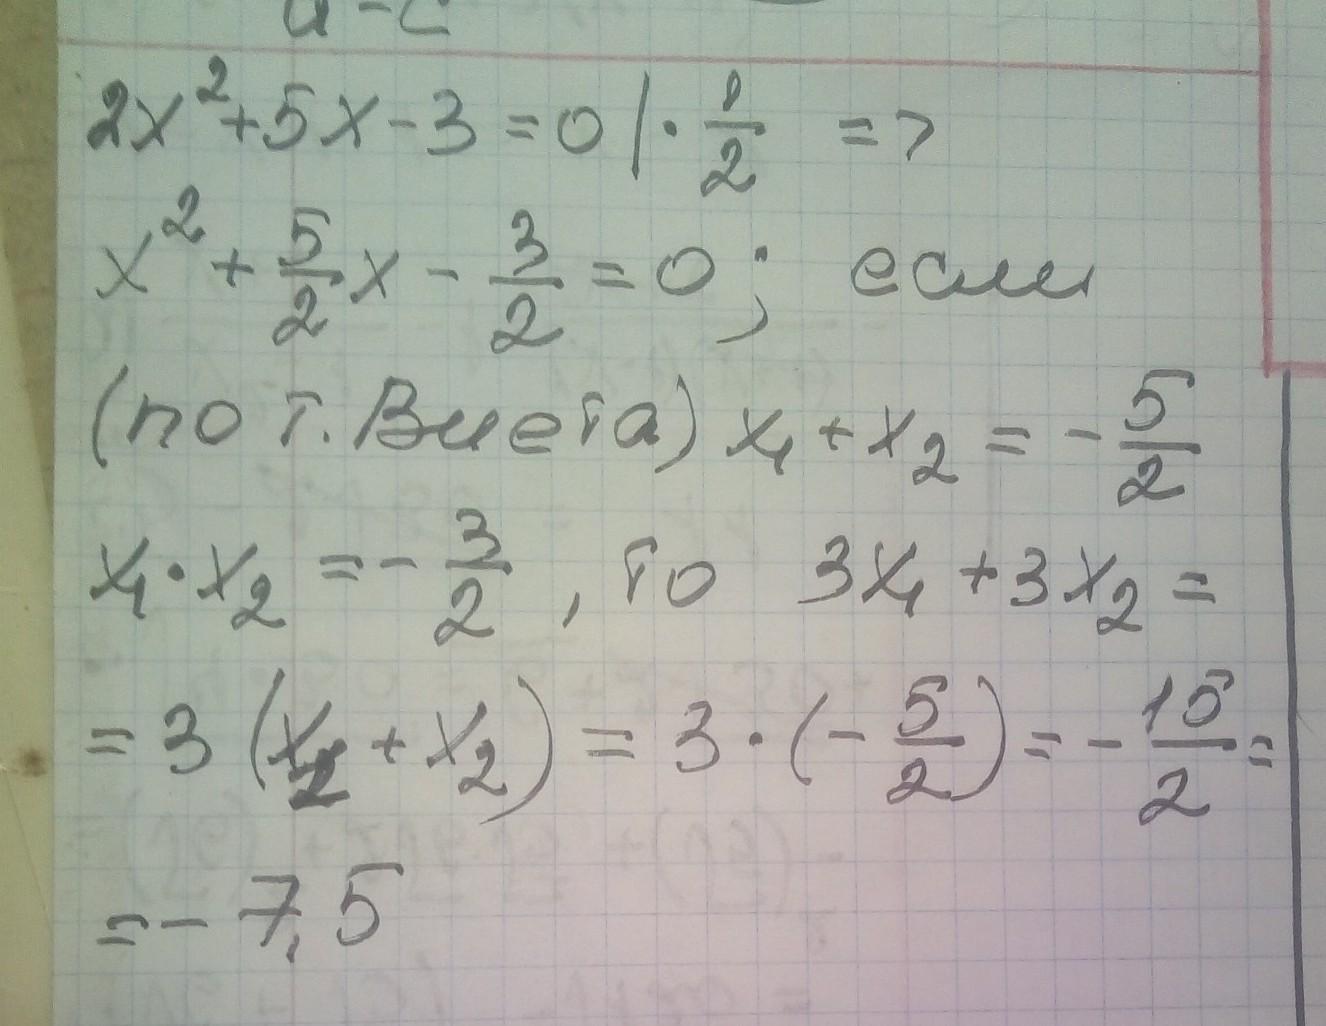 2x² + 5x - 3 = 0 | · 1/2 =>
x² + 5/2 x - 3/2 = 0; если
(по т. Виета) x₁ + x₂ = - 5/2
x₁ · x₂ = - 3/2, то 3x₁ + 3x₂ =
= 3 (x₂ + x₂) = 3 · (- 5/2) = - 15/2 =
= - 7,5